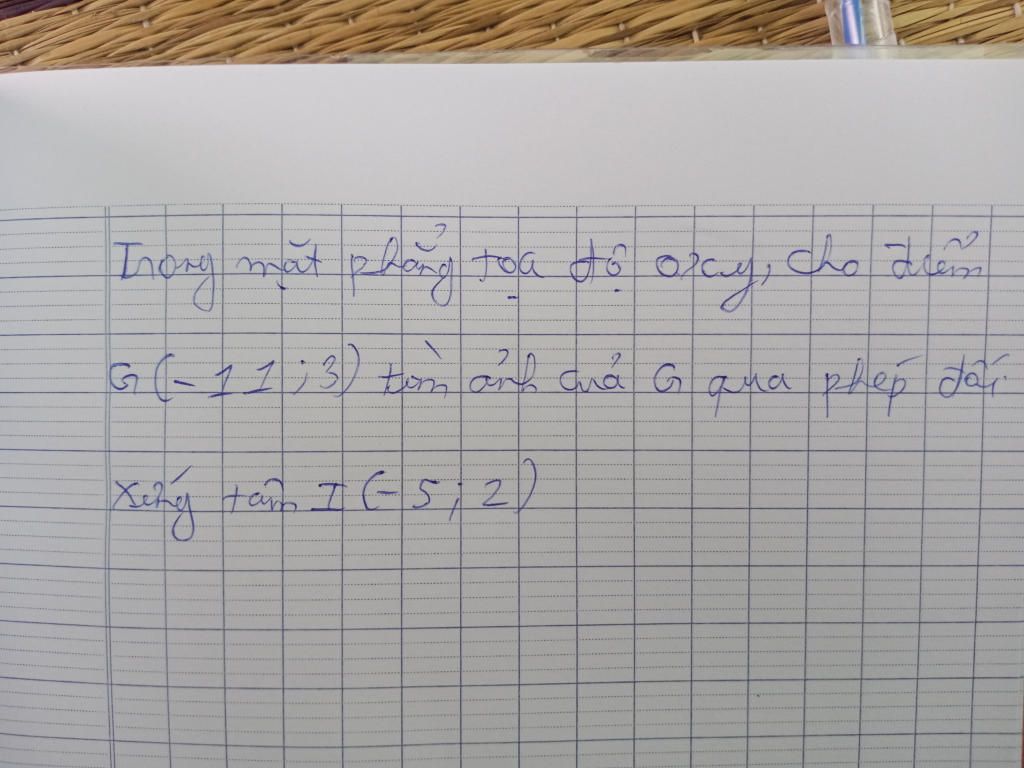 Trong mặt phẳng tọa độ oxy, cho điểm
G(-11;3) tìm ảnh của G qua phép đối
xứng tâm I(-5;2)